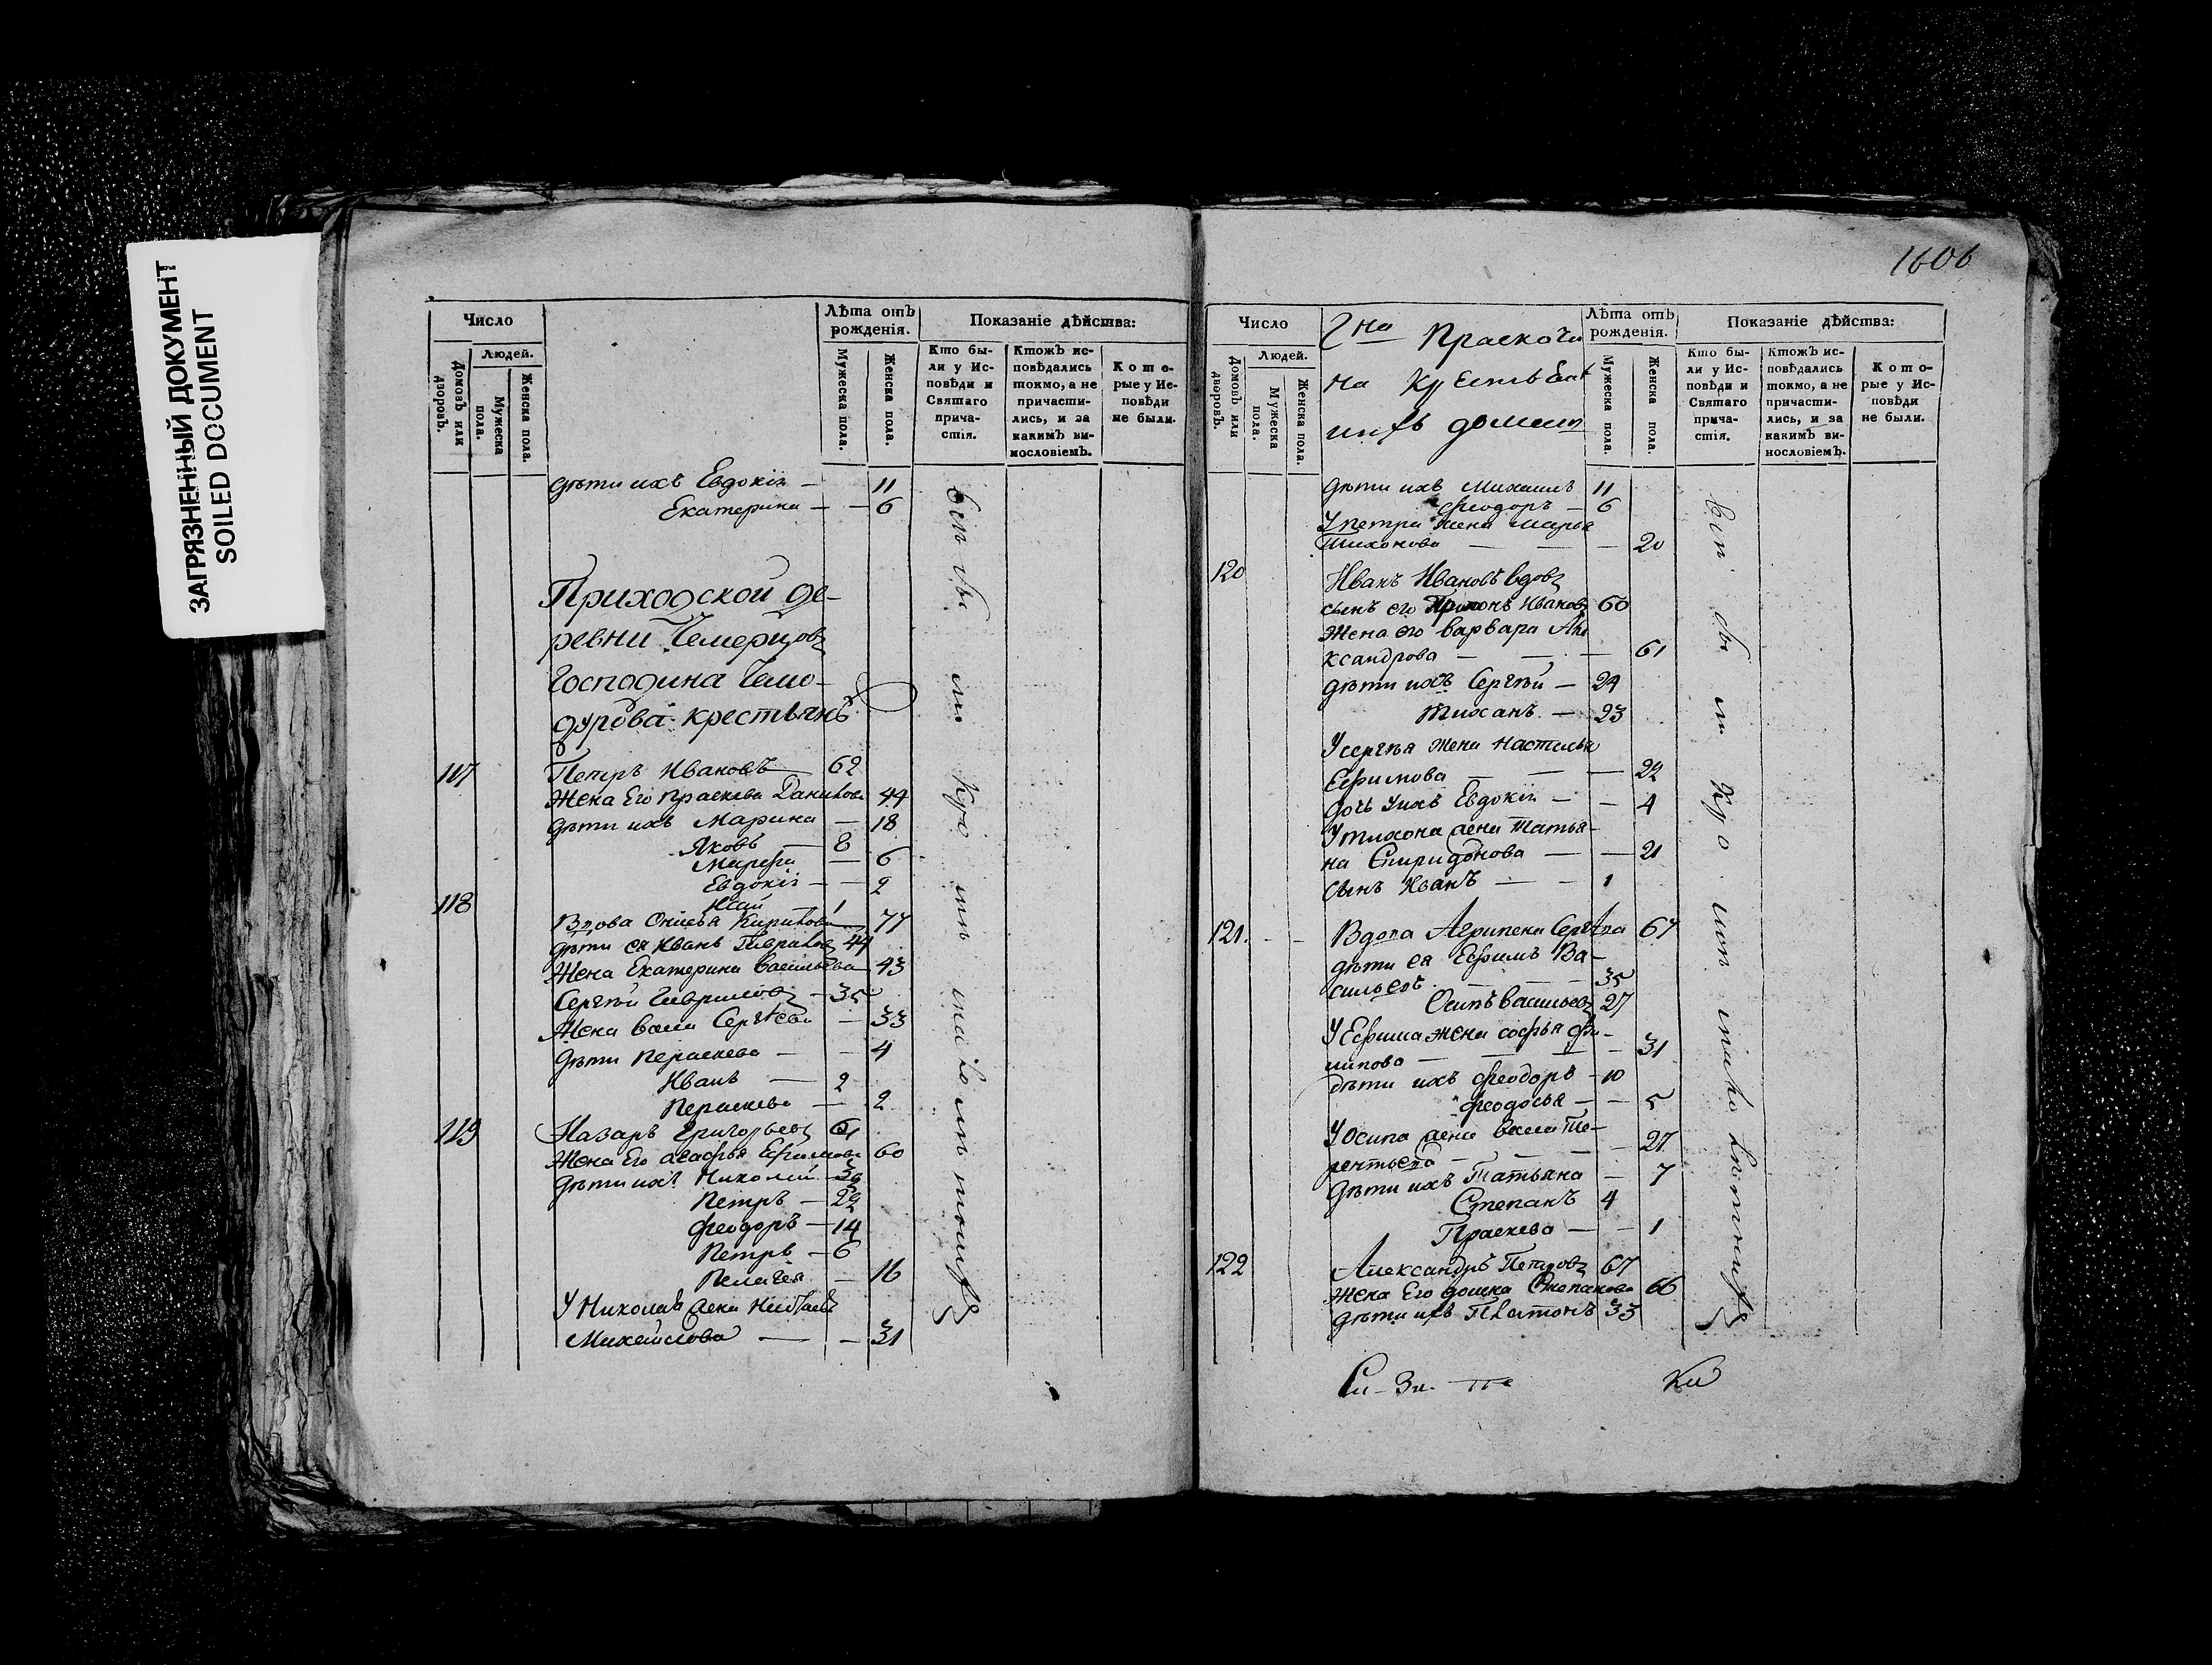 ЗАГРЯЗНЕННЫЙ ДОКУМЕНТ
SOILED DOCUMENT
Число
Людей.
Домовъ или дворовъ.
Мужеска пола.
Женска пола.
Лѣта отъ рожденія.
Мужеска пола.
Женска пола.
Показаніе дѣйства:
Кто были у Исповѣди и Святаго причастія.
Ктожъ исповѣдались токмо, а не причастились, и за какимъ винословіемъ.
Которые у Исповѣди не были.
дѣти ихъ Евдокія — 11
Екатерина — — 6
Приходской де-
ревни Чемерцовъ
Господина Чемо-
дурова крестьянъ
117 Петръ Ивановъ — 62
Жена Его Праскева Данилова 44
дѣти ихъ Марина — 18
Яковъ — 8
Марфа — 6
Евдокія — — 2
1
118 Вдова Кирилова 77
дѣти ея Иванъ Гавриловъ 44
Жена Екатерина Васильева 43
Сергѣй Гавриловъ — 35
Жена Васса Сергѣева — 33
дѣти Пераскева — — 4
Иванъ — 2
Пераскева — 2
119 Назаръ Григорьевъ 61
Жена Его Агафья Ефимова 60
дѣти ихъ Николай
Петръ — 22
Феодоръ — 14
Петръ — 6
Пелагея — 16
У Николая жена
Михайлова — — 31
1606
Число
Людей.
Домовъ или дворовъ.
Мужеска пола.
Женска пола.
Лѣта отъ рожденія.
Мужеска пола.
Женска пола.
Показаніе дѣйства:
Кто были у Исповѣди и Святаго причастія.
Ктожъ исповѣдались токмо, а не причастились, и за какимъ винословіемъ.
Которые у Исповѣди не были.
на
ихъ
дѣти ихъ Михаилъ 11
Феодоръ — 6
У Петра жена Марья
Тихонова — — — 20
120 Иванъ Ивановъ вдовъ
сынъ его Ивановъ 60
Жена его Варвара Але
ксандрова — — — 61
дѣти ихъ Сергѣй — 24
Тиханъ — 23
У Сергѣя жена Настасья
Ефимова — — — 22
дочь у ихъ Евдокія — — 4
У Тихона жена Татья-
на Спиридонова — — 21
сынъ Иванъ — — 1
121. Вдова Агрипена Сергѣва 67
дѣти ея Ефимъ Ва-
сильевъ — — 35
Осипъ Васильевъ 27
У Ефима жена Софья Фи-
липова — — — 31
дѣти ихъ Феодоръ — 10
Феодосья — — 5
У Осипа жена Васса Те-
рентьева — — — 27
дѣти ихъ Татьяна — 7
Степанъ 4
Праскева — — 1
122 Александръ Петровъ 67
Жена Его Домна Степанова 66
дѣти ихъ Платонъ 33